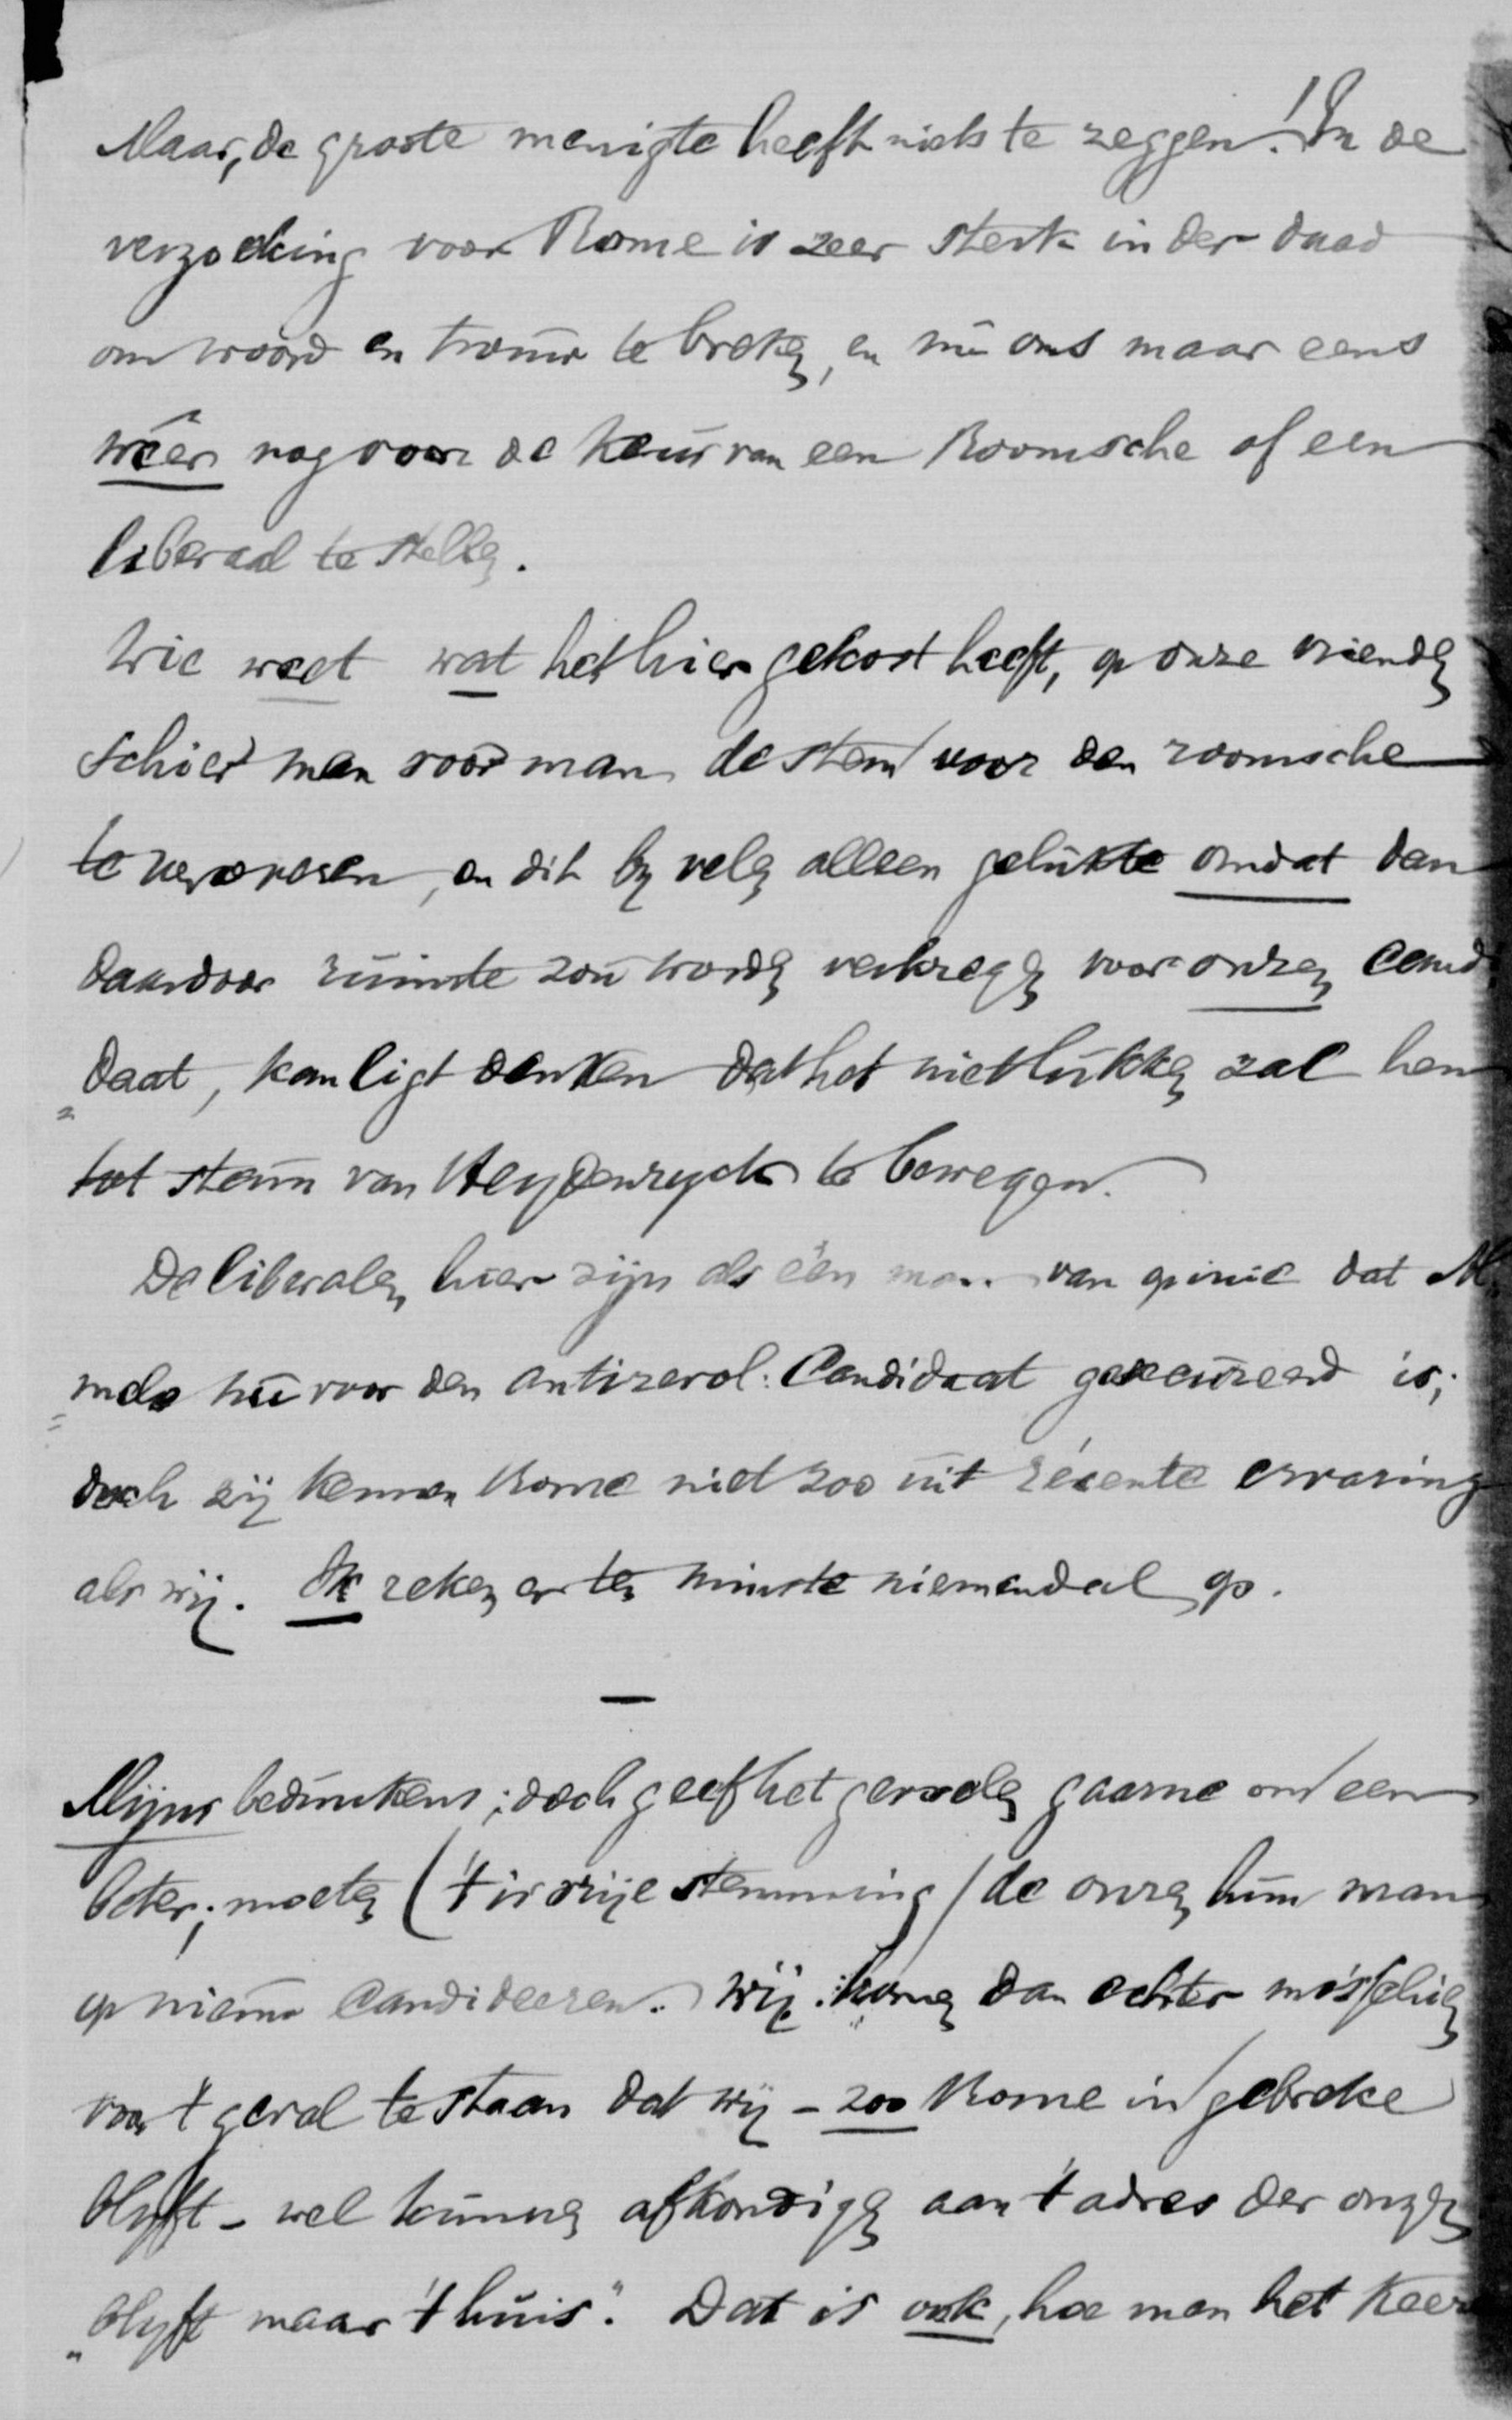 Maar, de groote menigte heeft niets te zeggen! En de
verzoeking voor Rome is zeer sterk inderdaad
om woord en trouw te breken, en nu ons maar eens
wéér nog voor de keus van een Roomsche of een
liberaal te stellen.
Wie weet wat het hier gekost heeft, op onze vrienden
schier man voor man de stem voor den roomsche
te veroveren, en dit by velen alleen gelukte omdat dan
daardoor ruimte zou worden verkregen voor onzen Candi
„daat, kan ligt denken dat het niet lukken zal hen
tot steun van Heydenryck te bewegen.
De liberalen hier zijn als één man van opinie dat M.
„mels nu voor den antirevol: Candidaat geassureerd is;
doch zij kennen Rome niet zoo uit récente ervaring
als wij. Ik reken er ten minste niemendal op.
—
Mijns bedunkens; doch geef het gevoelen gaarne om een
beter; moeten ('t is vrije stemming) de onzen hun man
op nieuw candideeren. Wij komen dan echter misschien
voor 't geval te staan dat wij – zoo Rome in gebreke
blyft – wel kunnen afkondigen aan 't adres der onzen
„blyft maar 't huis." Dat is ook, hoe men het keer